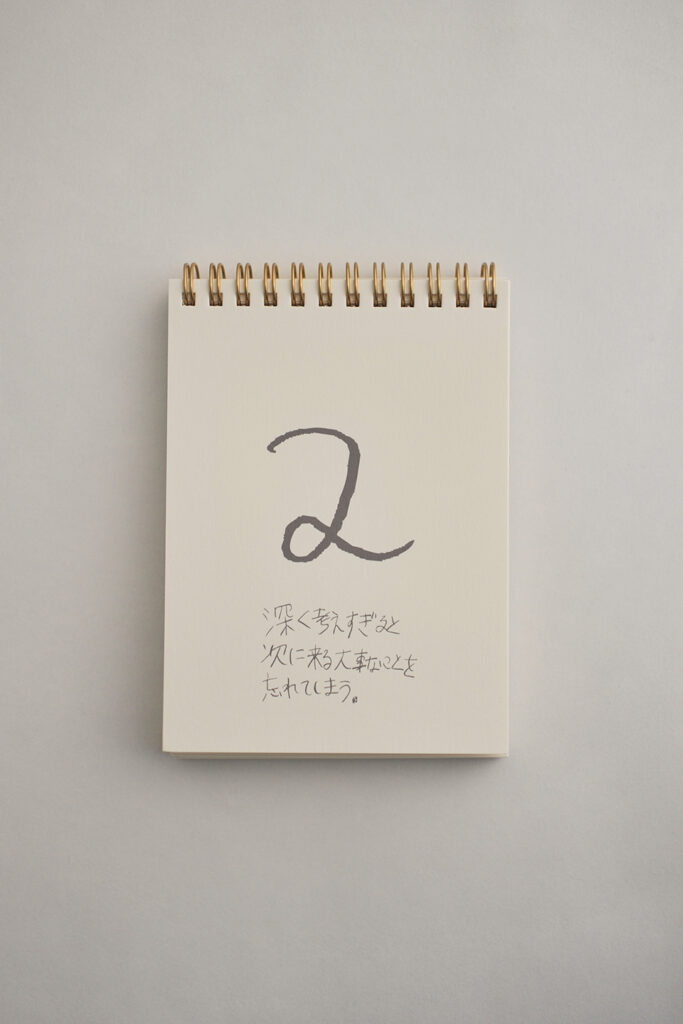 2
深く考えすぎると
次に来る大事なことを
忘れてしまう。